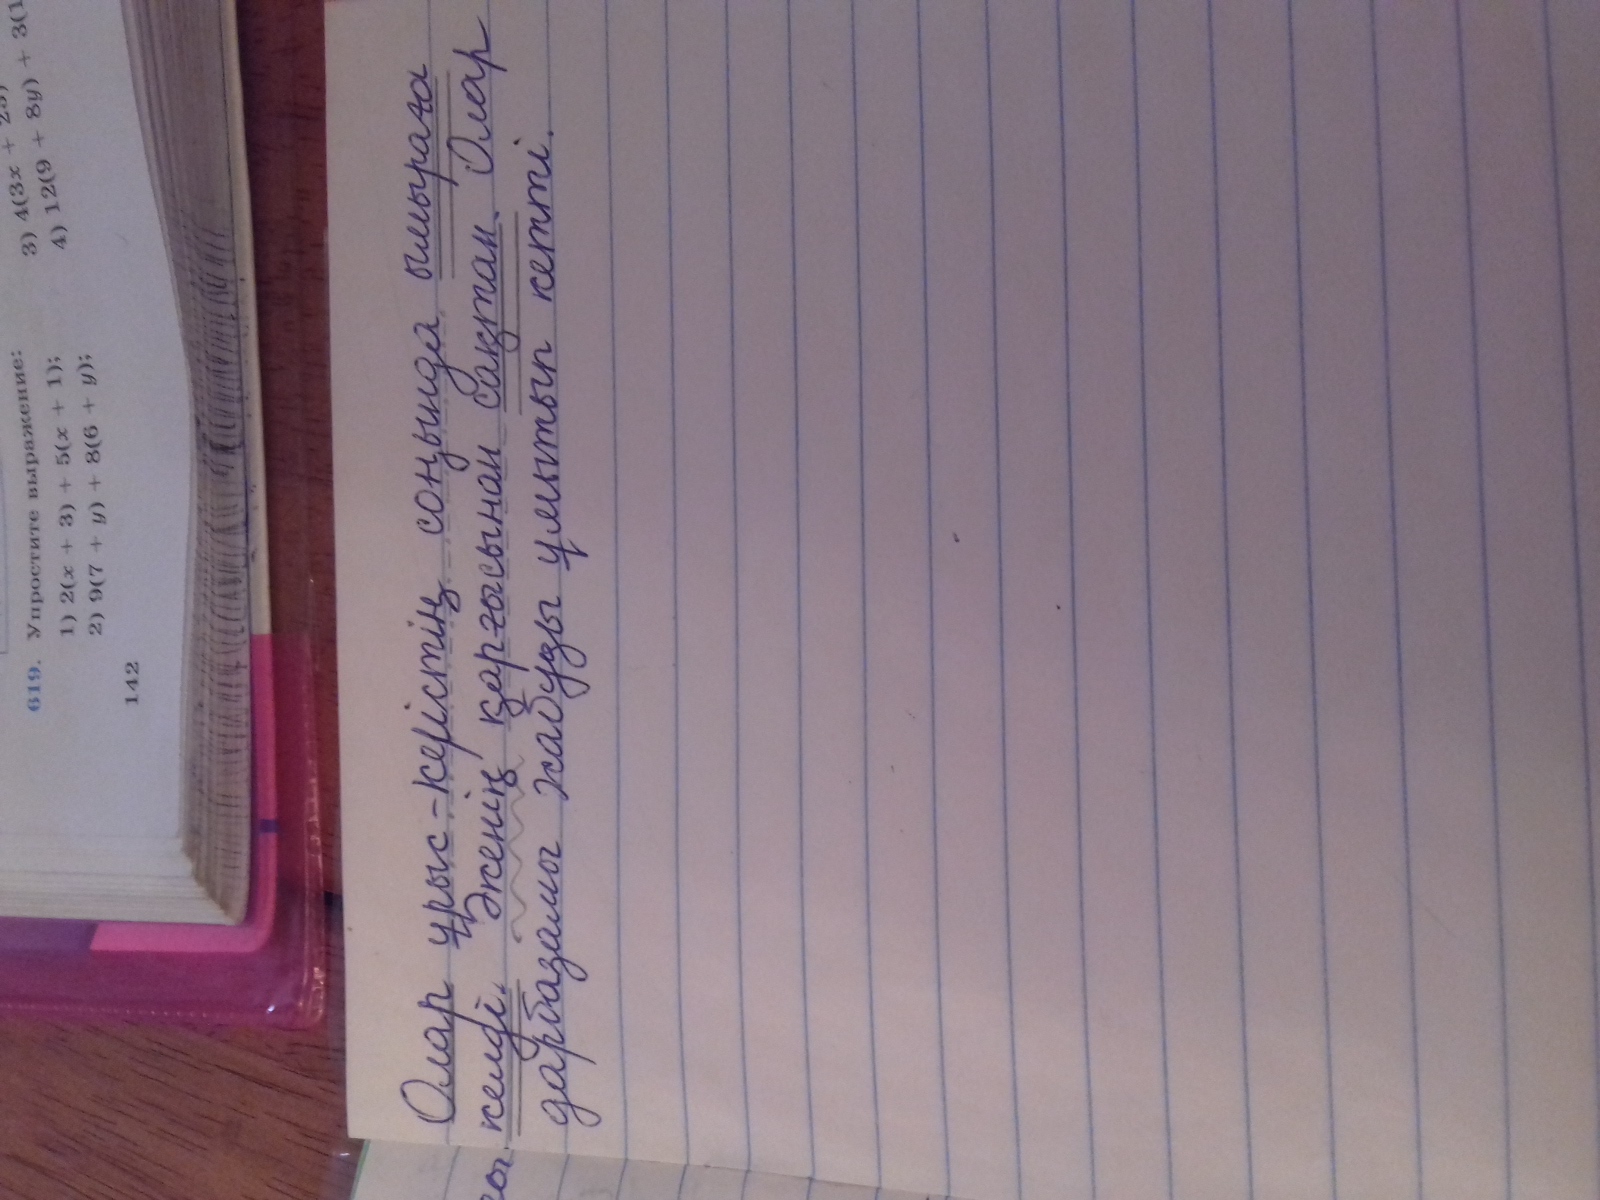 3) 4(3x + 
4) 12(9 + 8y) + 3(1
619. Упростите выражение:
1) 2(x + 3) + 5(x + 1);
2) 9(7 + y) + 8(6 + y);
142
Олар ұрыс-керістің соңында ымыраға
келді. Әженің қарғысынан сақтан. Олар
дарбазаны жабуды ұмытып кетті.